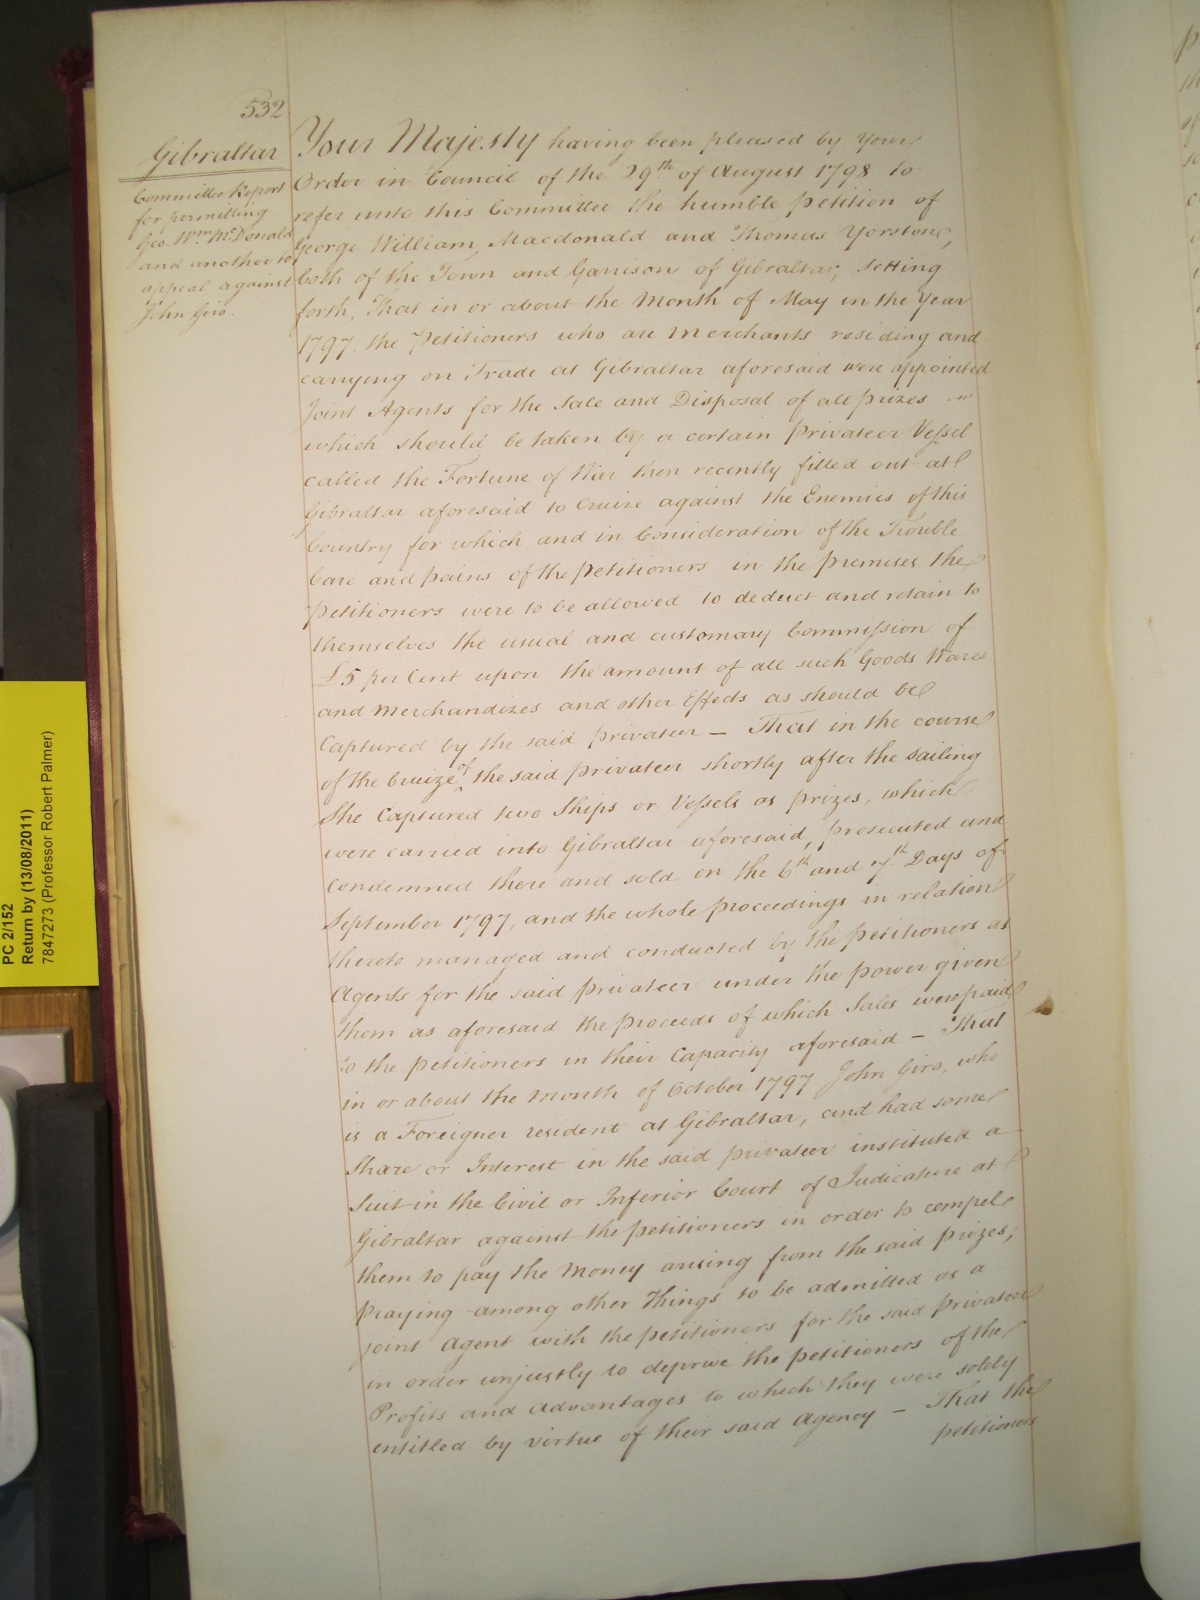 532
Gibraltar
Committee Report
for permitting
Geo. Wm. McDonald
and another to
appeal against
John Giro.
Your Majesty having been pleased by Your
Order in Council of the 29th of August 1798 to
refer unto this Committee the humble petition of
George William Macdonald and Thomas Yorstone,
both of the Town and Garrison of Gibraltar, setting
forth, That in or about the Month of May in the Year
1797. the Petitioners who are Merchants residing and
carrying on Trade at Gibraltar aforesaid were appointed
Joint Agents for the Sale and Disposal of all prizes
which should be taken by a certain Privateer Vessel
called the Fortune of War then recently fitted out at
Gibraltar aforesaid to Cruize against the Enemies of this
Country for which and in Consideration of the Trouble
Care and pains of the petitioners in the premises the
petitioners were to be allowed to deduct and retain to
themselves the usual and customary Commission of
£5 per Cent upon the amount of all such Goods Wares
and Merchandizes and other Effects as should be
Captured by the said privateer — That in the course
of the Cruize of the said privateer shortly after the sailing
She Captured two Ships or Vessels as prizes, which
were carried into Gibraltar aforesaid, prosecuted and
condemned there and sold on the 6th and 7th Days of
September 1797, and the whole proceedings in relation
thereto managed and conducted by the petitioners as
Agents for the said privateer under the power given
them as aforesaid the proceeds of which Sales were paid
to the petitioners in their Capacity aforesaid — That
in or about the Month of October 1797 John Giro, who
is a Foreigner resident at Gibraltar, and had some
Share or Interest in the said privateer instituted a
Suit in the Civil or Inferior Court of Judicature at
Gibraltar against the petitioners in order to compel
them to pay the Money arising from the said prizes;
praying among other Things to be admitted as a
joint Agent with the petitioners for the said privateer
in order unjustly to deprive the petitioners of the
Profits and Advantages to which they were solely
entitled by virtue of their said Agency — That the
petitioners
PC 2/152
Return by (13/08/2011)
7847273 (Professor Robert Palmer)